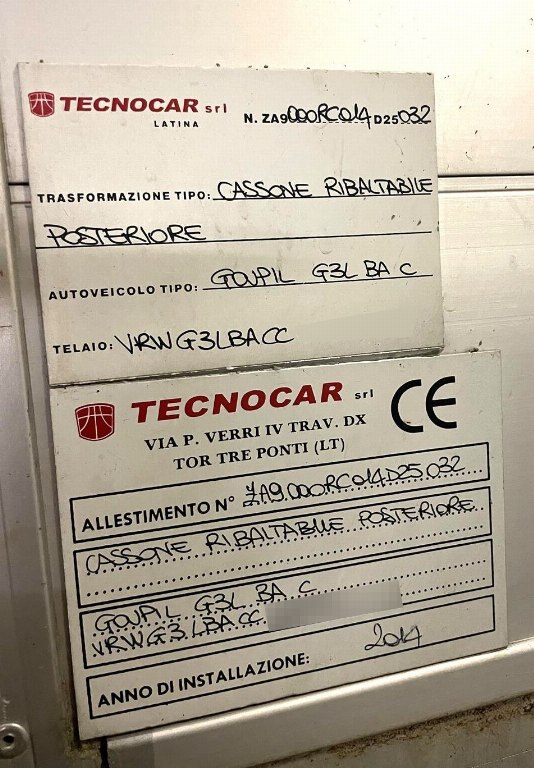 TECNOCAR srl
LATINA
N. ZA9000RC014D25032
TRASFORMAZIONE TIPO: CASSONE RIBALTABILE
POSTERIORE
AUTOVEICOLO TIPO: GOUPIL G3L BA C
TELAIO: VRWG3LBACC
TECNOCAR srl
CE
VIA P. VERRI IV TRAV. DX
TOR TRE PONTI (LT)
ALLESTIMENTO N° ZA9.000RC014D25032
CASSONE RIBALTABILE POSTERIORE
GOUPIL G3L BA C
VRWG3LBACC
ANNO DI INSTALLAZIONE: 2014